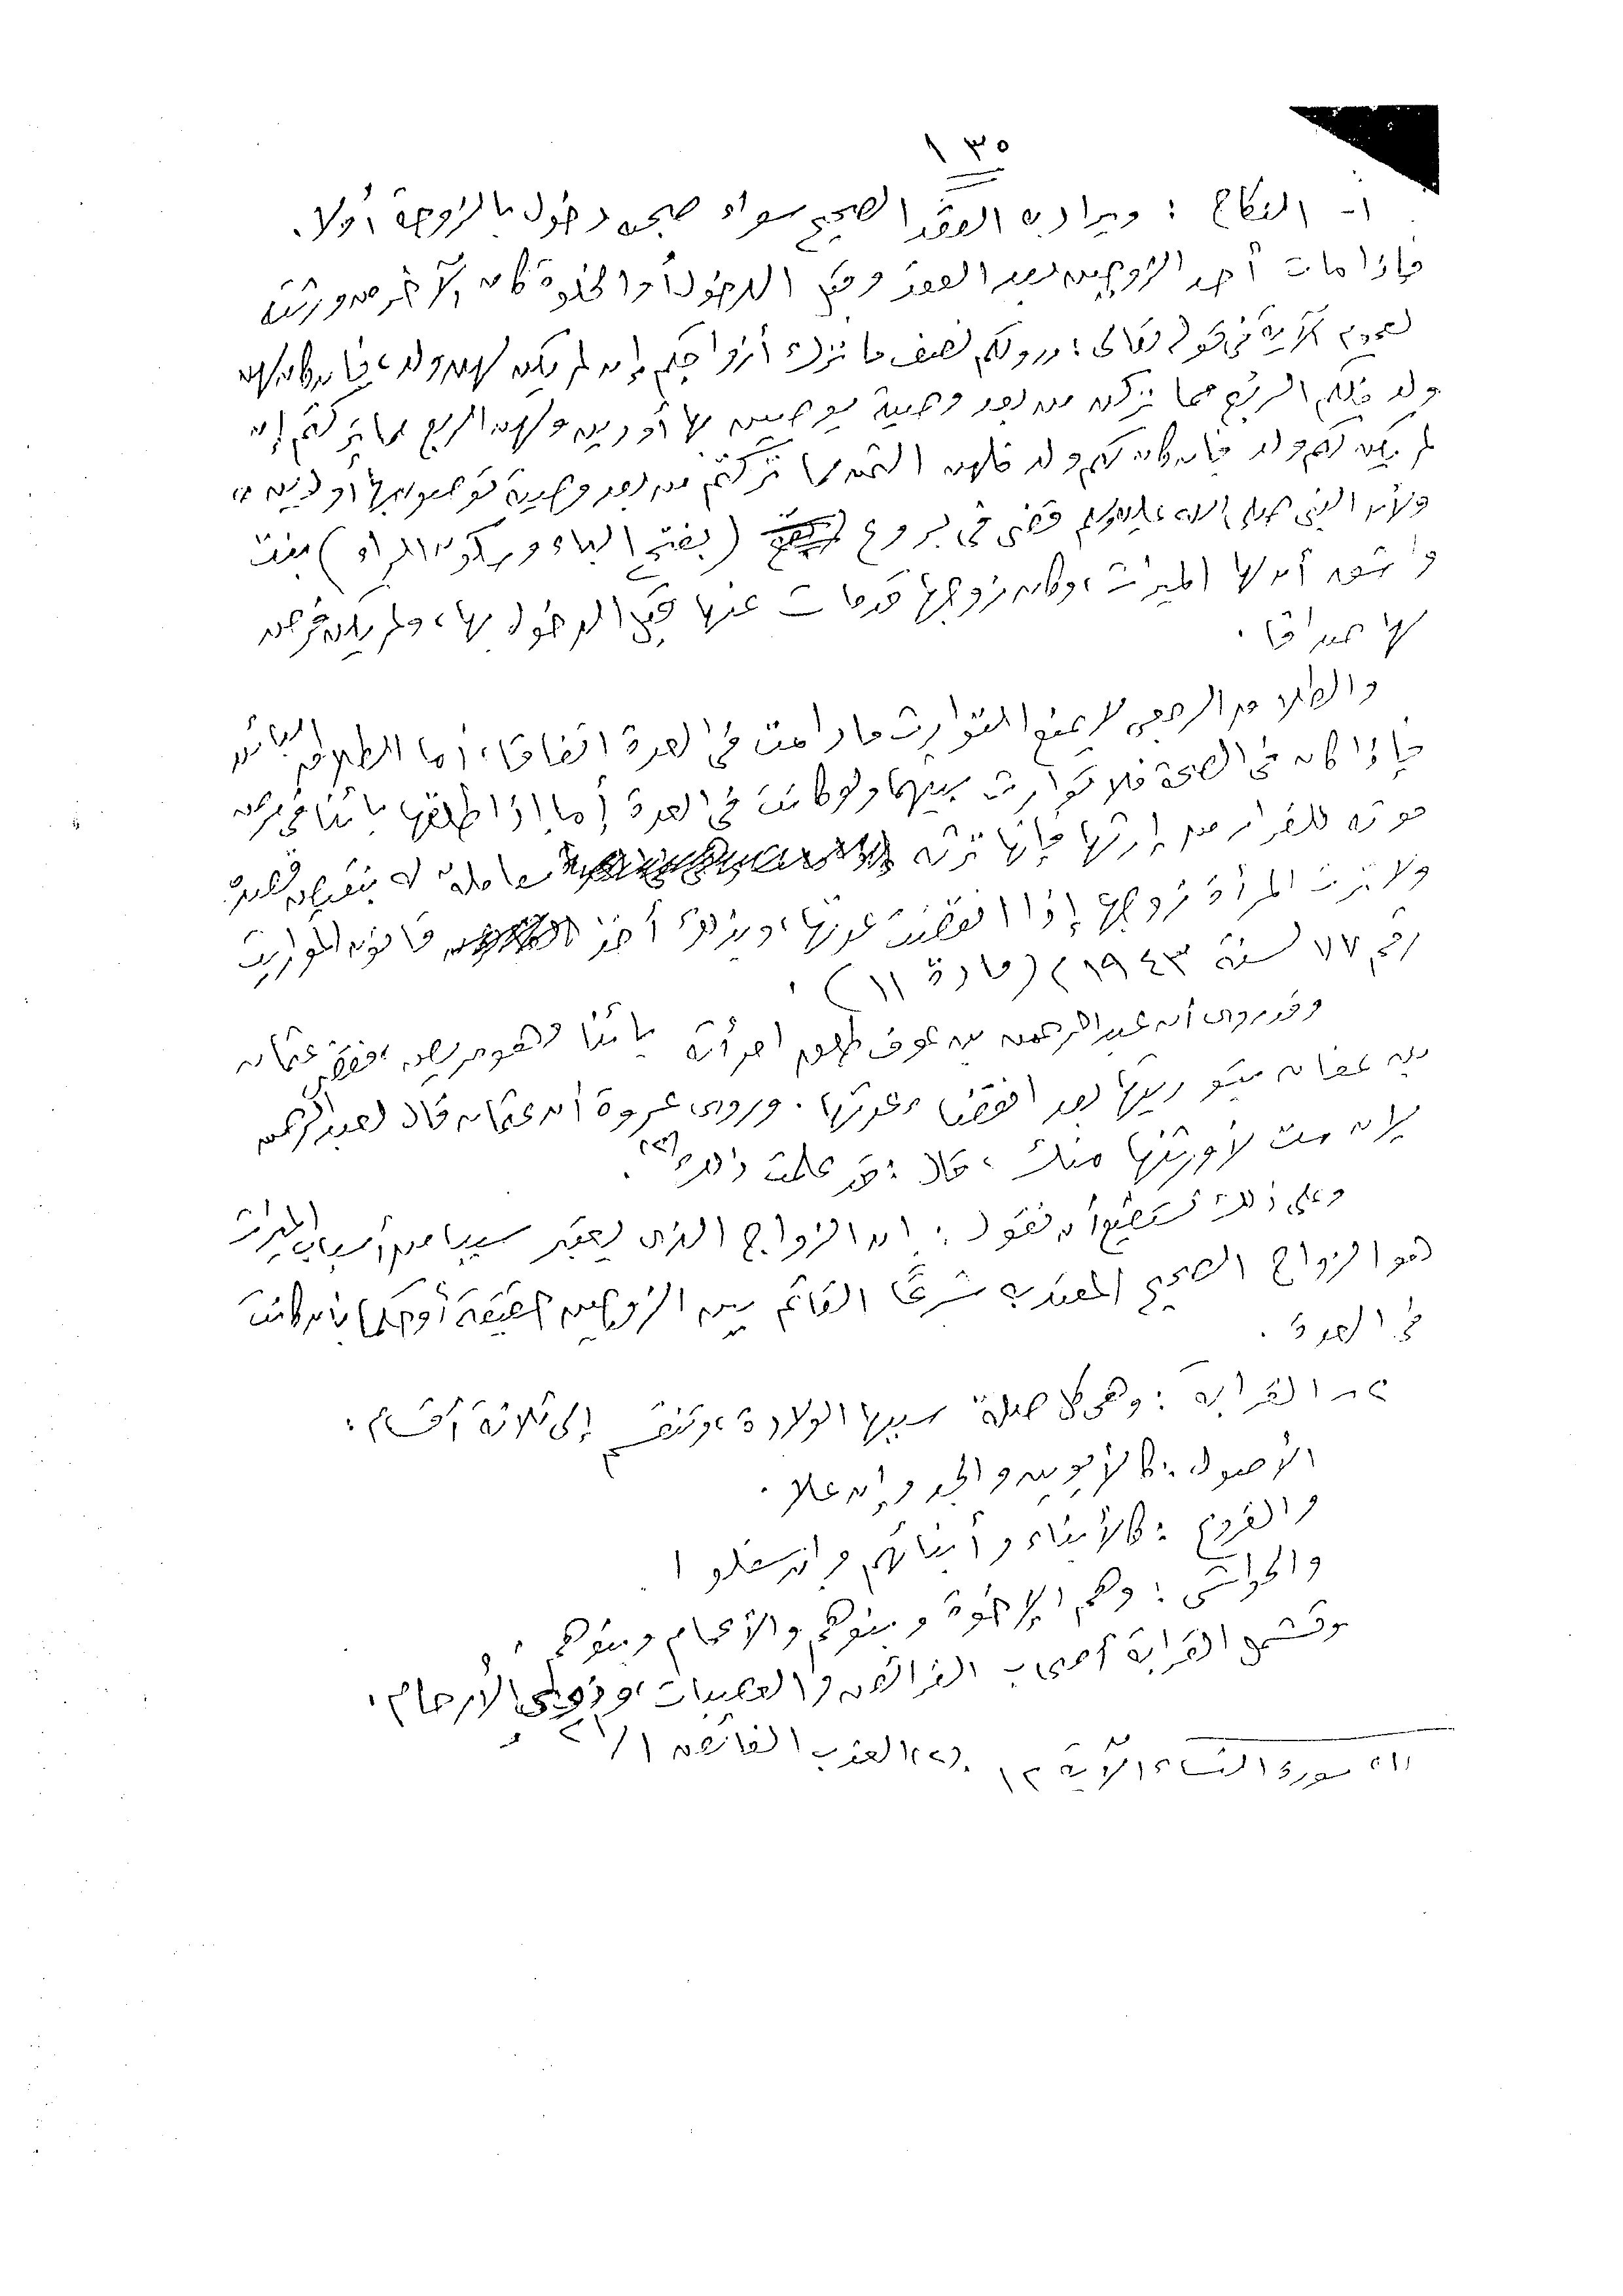 ١٣٥
١- النكاح : ويراد به العقد الصحيح سواء صحبه دخول بالزوجة أولا.
فإذا مات أحد الزوجين بعد العقد وقبل الدخول أو الخلوة كان الآخر من ورثته
لعموم الآية فى قوله تعالى : « ولكم نصف ما ترك أزواجكم إن لم يكن لهن ولد، فإن كان لهن
ولد فلكم الربع مما تركن من بعد وصية يوصين بها أو دين ولهن الربع مما تركتم إن
لم يكن لكم ولد فإن كان لكم ولد فلهن الثمن مما تركتم من بعد وصية توصون بها أو دين »
ولأن النبى صلى الله عليه وسلم قضى فى بروع (بفتح الباء وسكون الراء) بنت
واشق أن لها الميراث، وكان زوجها قد مات عنها قبل الدخول بها، ولم يكن فرض
لها صداقا .
والطلاق الرجعى لا يمنع التوارث ما دامت فى العدة اتفاقا، أما الطلاق البائن
فإذا كان فى الصحة فلا توارث بينهما ولو كانت فى العدة أما إذا طلقها بائنا فى مرض
موته للفرار من إرثها فإنها ترثه معاملة له بنقيض قصده
ولا ترث المرأة زوجها إذا انقضت عدتها، وبذلك أخذ قانون المواريث
رقم ٧٧ لسنة ١٩٤٣ (مادة ١١) .
وقد روى أن عبد الرحمن بن عوف طلق امرأته بائنا وهو مريض، فقضى عثمان
بن عفان بتوريثها بعد انقضاء عدتها . وروى عروة أن عثمان قال لعبد الرحمن
لإن مت لأورثنها منك، قال : قد علمت ذلك (٢).
وعلى ذلك نستطيع أن نقول : إن الزواج الذى يعتبر سببا من أسباب الميراث
هو الزواج الصحيح المعتد به شرعًا القائم بين الزوجين حقيقة أو حكما بأن كانت
فى العدة .
٢- القرابة : وهى كل صلة سببها الولادة، وتنقسم إلى ثلاثة أقسام :
الأصول : كالأبوين والجد وإن علا .
والفروع : كالأبناء وأبنائهم وإن سفلوا .
والحواشى : وهم الإخوة وبنوهم والأعمام وبنوهم .
وتشمل القرابة أصحاب الفرائض والعصبات، وذوى الأرحام .
(١) سورة النساء الآية ١٢ . (٢) العذب الفائض ٢١/١